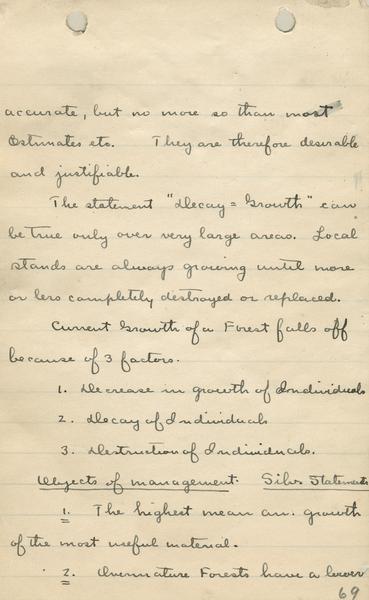 accurate, but no more so than most
Estimates etc. They are therefore desirable
and justifiable.
The statement "Decay = Growth" can
be true only over very large areas. Local
stands are always growing until more
or less completely destroyed or replaced.
Current Growth of a Forest falls off
because of 3 factors.
1. Decrease in growth of Individuals
2. Decay of Individuals
3. Destruction of Individuals.
Objects of management. Silv. Statements
1. The highest mean an. growth
of the most useful material.
2. Overmature Forests have a lower
69